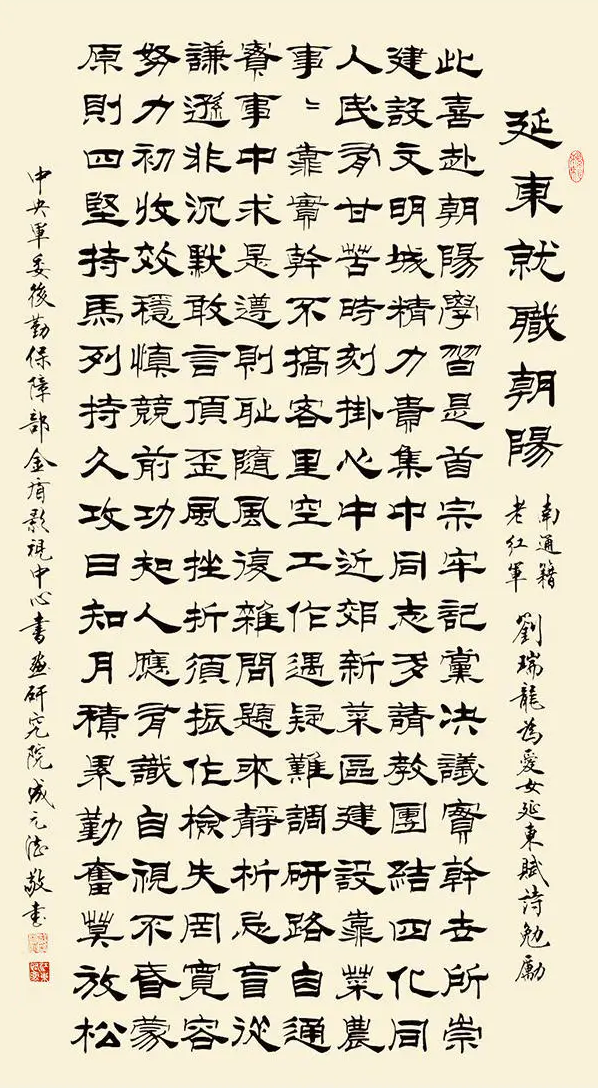 延東就職朝陽
南通籍
老紅軍
劉瑞龍為愛女延東賦詩勉勵
此喜赴朝陽學習是首宗牢記黨決議實幹去所崇
建設文明城精力貴集中同志多請教團結四化同
人民有甘苦時刻掛心中近郊新菜區建設靠菜農
事〻靠實幹不搞客里空工作遇疑難調研路自通
實事中求是遵則恥隨風復雜問題來靜析忌盲從
謙遜非沉默敢言頂歪風挫折須振作檢失罔寬容
努力初收效穩慎競前功知人應有識自視不昏蒙
原則四堅持馬列持久攻日知月積累勤奮莫放松
中央軍委後勤保障部金盾影視中心書画研究院成元敬書